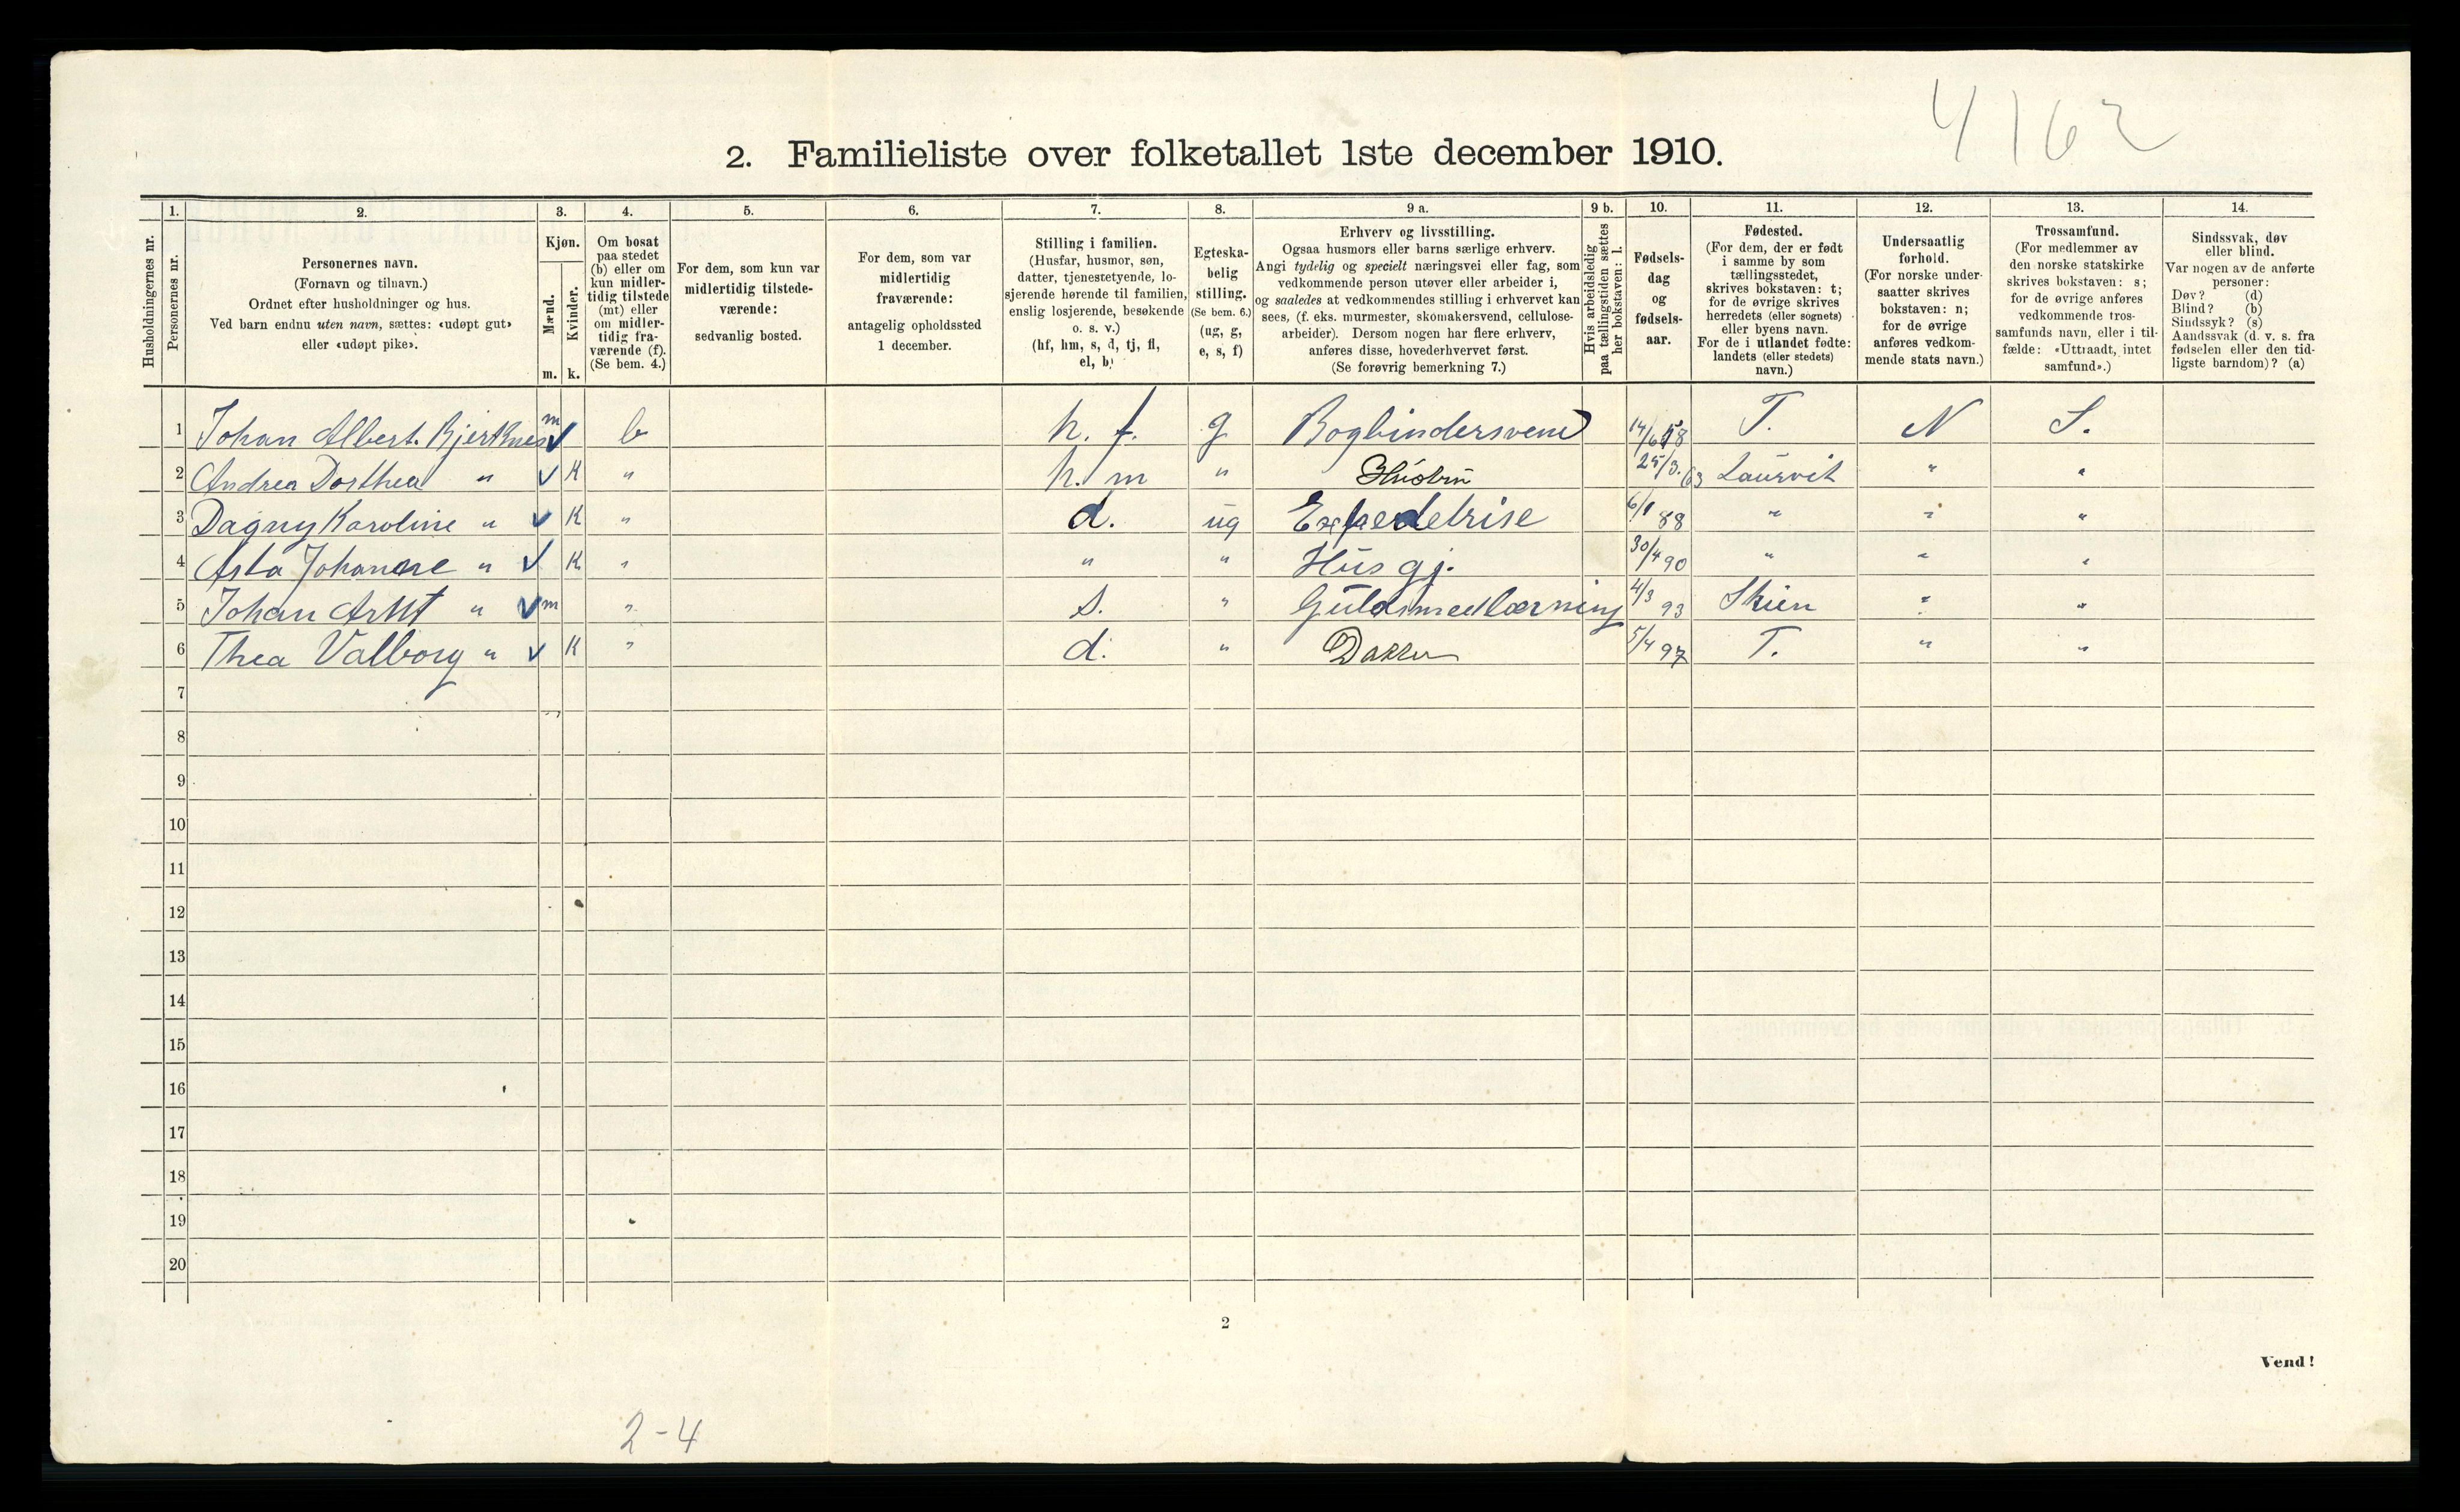 4162
2. Familieliste over folketallet 1ste december 1910.
Husholdningernes nr.
1. Personernes nr.
2. Personernes navn. (Fornavn og tilnavn.) Ordnet efter husholdninger og hus. Ved barn endnu uten navn, sættes: «udøpt gut» eller «udøpt pike».
3. Kjøn. Mænd. m. Kvinder. k.
4. Om bosat paa stedet (b) eller om kun midlertidig tilstede (mt) eller om midlertidig fraværende (f). (Se bem. 4.)
5. For dem, som kun var midlertidig tilstedeværende: sedvanlig bosted.
6. For dem, som var midlertidig fraværende: antagelig opholdssted 1 december.
7. Stilling i familien. (Husfar, husmor, søn, datter, tjenestetyende, losjerende hørende til familien, enslig losjerende, besøkende o. s. v.) (hf, hm, s, d, tj, fl, el, b)
8. Egteskabelig stilling. (Se bem. 6.) (ug, g, e, s, f)
9 a. Erhverv og livsstilling. Ogsaa husmors eller barns særlige erhverv. Angi tydelig og specielt næringsvei eller fag, som vedkommende person utøver eller arbeider i, og saaledes at vedkommendes stilling i erhvervet kan sees, (f. eks. murmester, skomakersvend, cellulosearbeider). Dersom nogen har flere erhverv, anføres disse, hovederhvervet først. (Se forøvrig bemerkning 7.)
9 b. Hvis arbeidsledig paa tællingstiden sættes her bokstaven: l.
10. Fødselsdag og fødselsaar.
11. Fødested. (For dem, der er født i samme by som tællingsstedet, skrives bokstaven: t; for de øvrige skrives herredets (eller sognets) eller byens navn. For de i utlandet fødte: landets (eller stedets) navn.)
12. Undersaatlig forhold. (For norske undersaatter skrives bokstaven: n; for de øvrige anføres vedkommende stats navn.)
13. Trossamfund. (For medlemmer av den norske statskirke skrives bokstaven: s; for de øvrige anføres vedkommende trossamfunds navn, eller i tilfælde: «Uttraadt, intet samfund».)
14. Sindssvak, døv eller blind. Var nogen av de anførte personer: Døv? (d) Blind? (b) Sindssyk? (s) Aandssvak (d. v. s. fra fødselen eller den tidligste barndom)? (a)
1 Johan Albert Bjerknes m b h. f. g Bogbindersvend 14/6 58 T. N S.
2 Andrea Dorthea " K " h. m " Husbru 25/3 63 Laurvik " "
3 Dagny Karoline " K " d. ug Expedetrise 6/1 88 " " "
4 Asta Johanne " K " " " Hus gj. 30/4 90 " " "
5 Johan Arnt " m " S. " Guldsmedlærning 4/3 93 Skien " "
6 Thea Valborg " K " d. " Datter 5/4 97 T. " "
7
8
9
10
11
12
13
14
15
16
17
18
19
20
2
Vend!
2-4